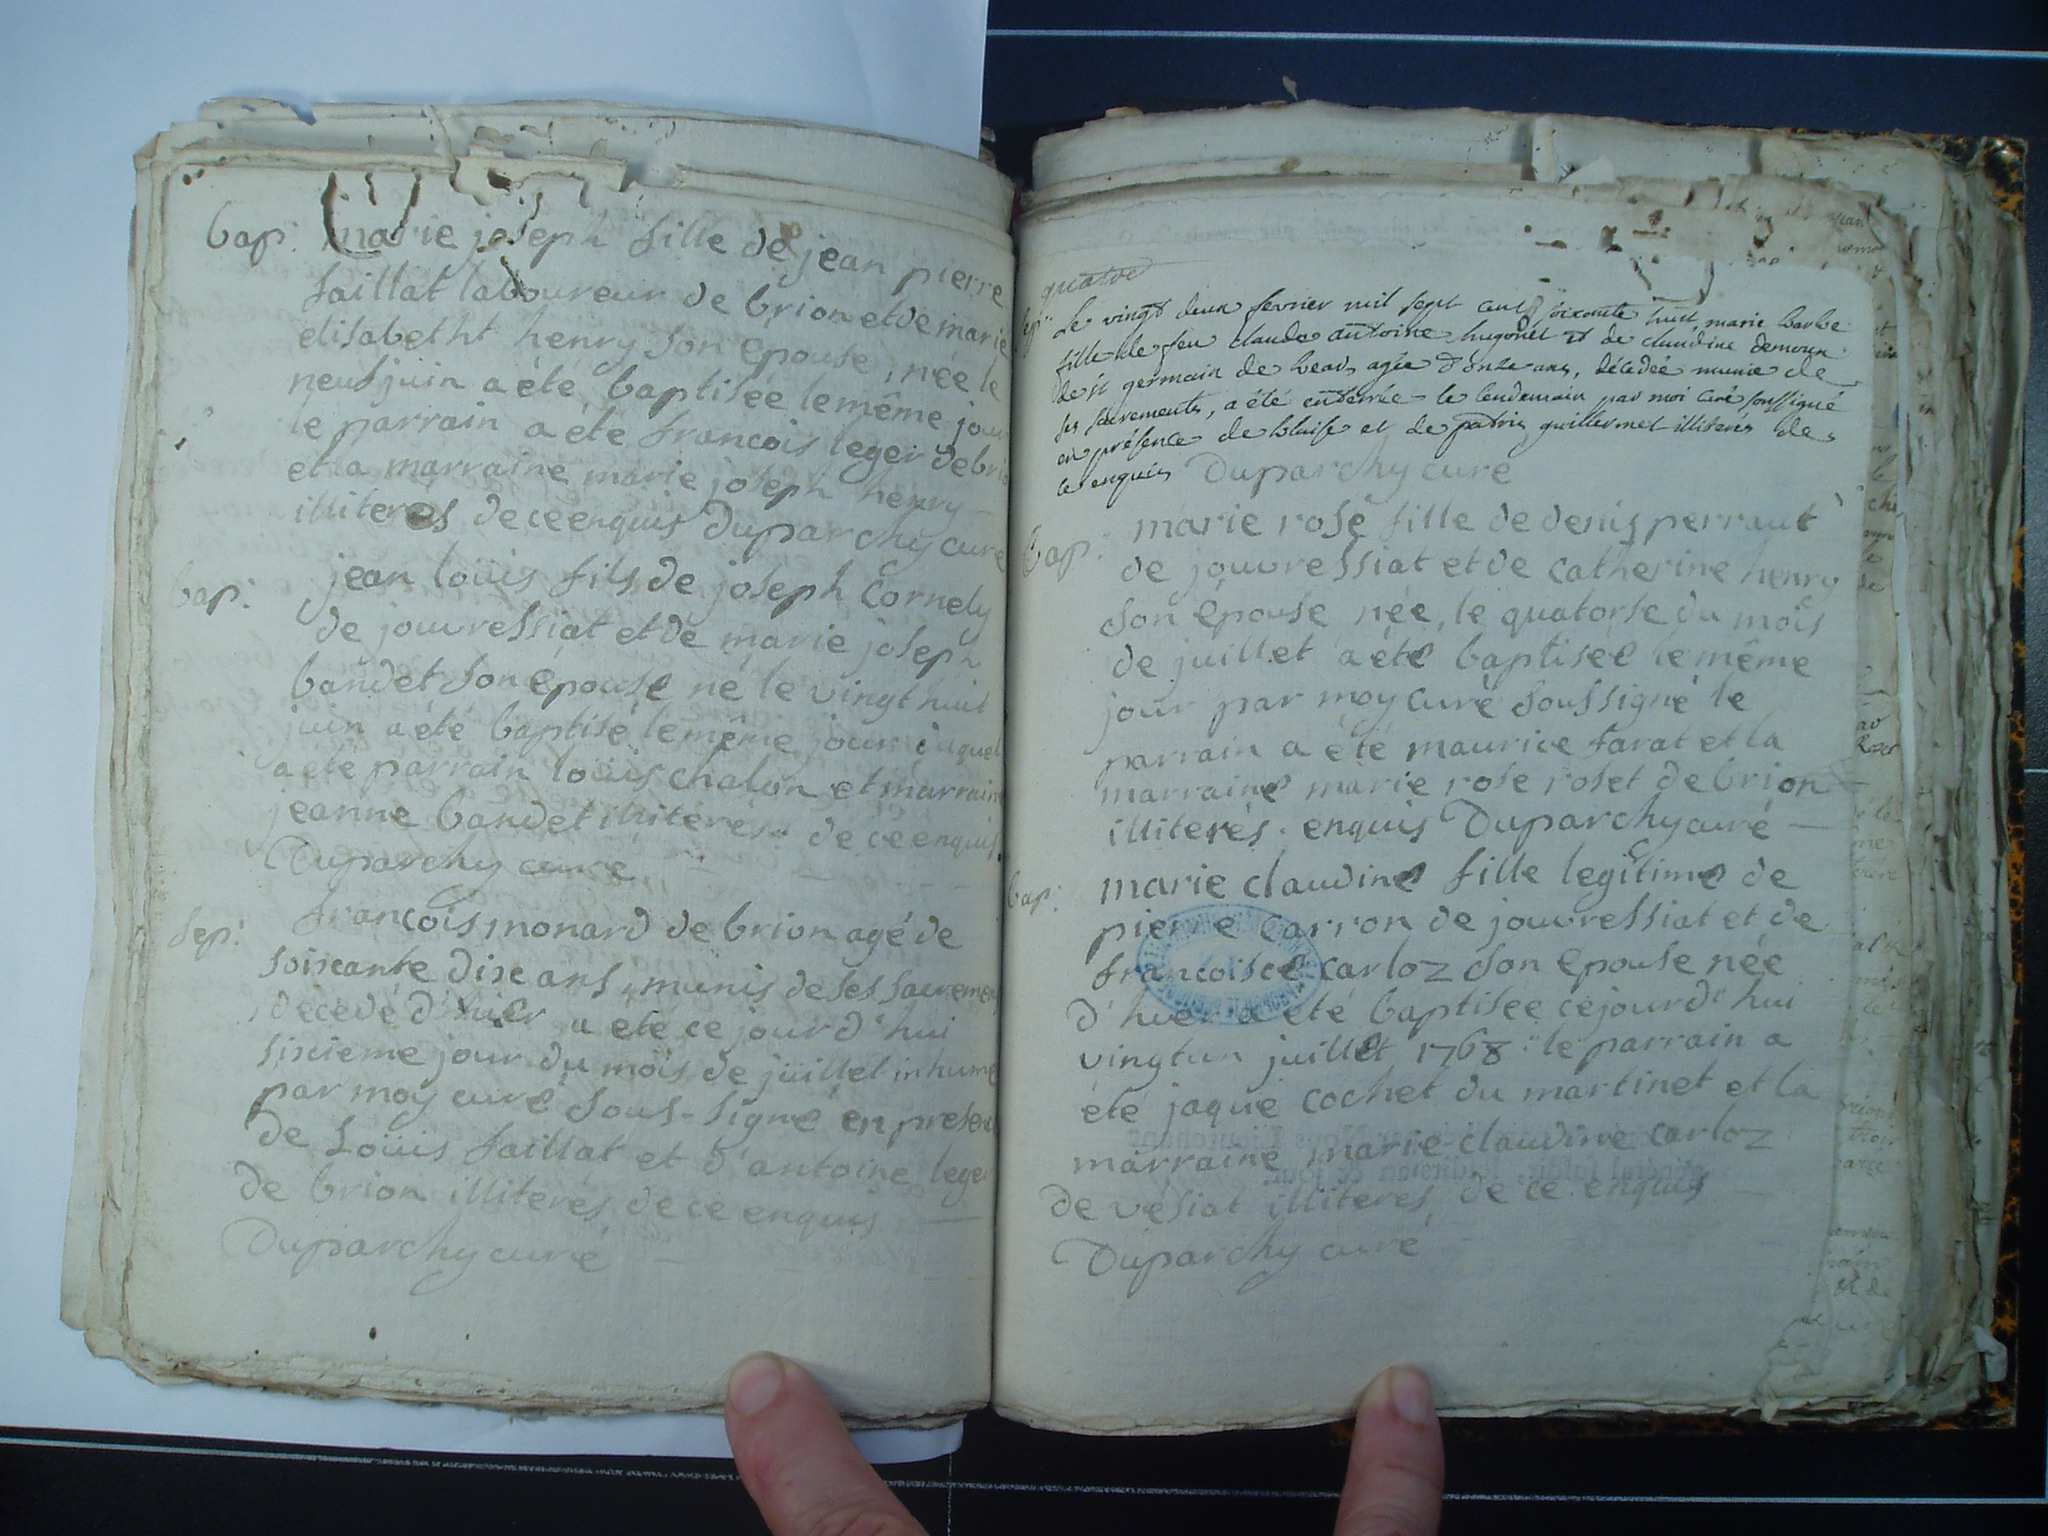 bap: marie joseph fille de jean pierre
faillat laboureur de brion et de marie
elisabetht henry son epouse, née le
neuf juin a été baptisée le même jour
le parrain a été francois leger de brion
et la marraine marie joseph henry
illiteres de ce enquis Duparchy curé
bap: jean loüis fils de joseph Cornely
de jouvressiat et de marie joseph
bandet son epouse né le vingt huit
juin a été baptisé le même jour duquel
a été parrain loüis chalon et marraine
jeanne bandet illiterés de ce enquis
Duparchy curé
sep: francois monard de brion agé de
soixante dixe ans, munis de ses sacremen
décédé d'hier a eté ce jourd'hui
sixieme jour du mois de juillet inhumé
par moy curé sous-signé en presen
de Loüis faillat et d'antoine leger
de brion illiterés de ce enquis
Duparchy curé
quatre
sep: Le vingt deux fevrier mil sept cent soixante huit, marie barbe
fille de feu claude antoine hugonet et de claudine
de st germain de beau, agée d'onze ans, décédée munie de
ses sacrements, a été enterrée le lendemain par moi curé soussigné
en présence de blaise et de patrix guillermet illiterés de
ce enquis Duparchy curé
Bap: marie rose fille de denis perraut
de jouvressiat et de catherine henry
son epouse née, le quatorse du mois
de juillet a été baptisée le même
jour par moy curé soussigné le
parrain a été maurice farat et la
marraine marie rose roset de brion
illiterés. enquis Duparchy curé
bap: marie claudine fille legitime de
pierre carron de jouvressiat et de
francoise carloz son epouse née
d'hier a été baptisée cejourd'hui
vingtun juillet 1768 le parrain a
été jaque cochet du martinet et la
marraine marie claudine carloz
de vésiat illiteres de ce enquis
Duparchy curé